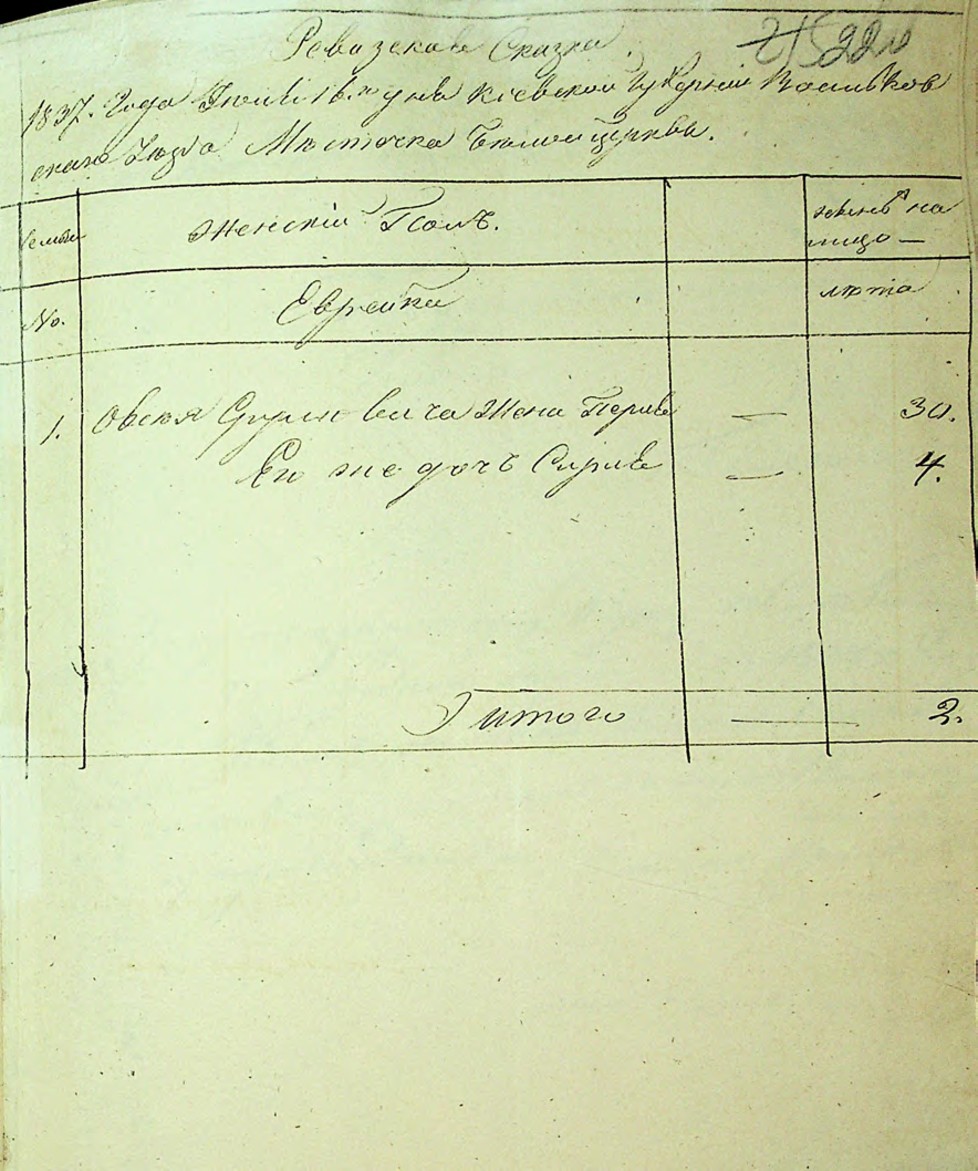 Ревизская Сказка.
1837. Года Июля 16. дня Кіевской Губерніи Васильков
скаго Уезда Местечка Белой Церквы.
Семьи Женскій Полъ. Женъ на
лицо —
No. Еврейка лета
1. Овсея жена Перля — 30.
Его же дочь — 4.
Итого — 2.